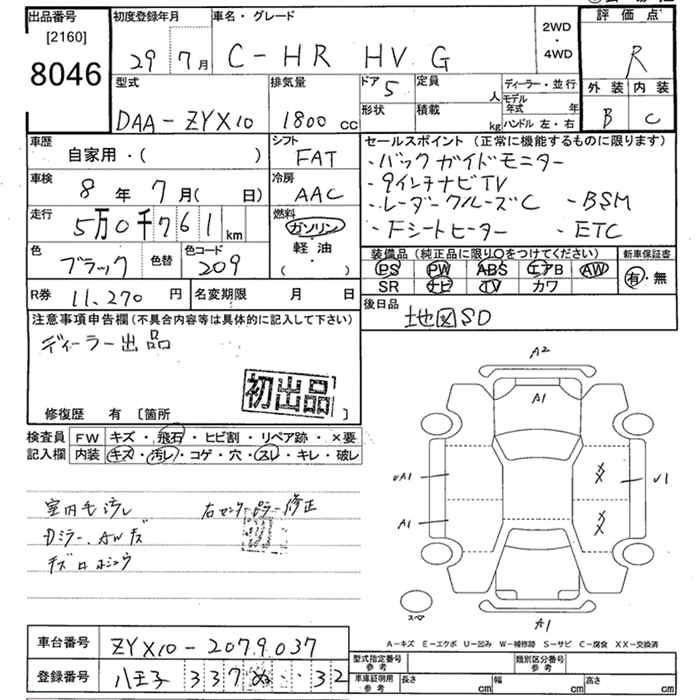 出品番号 [2160] 8046
初度登録年月 29 7月
車名・グレード C-HR HV G
2WD・4WD
評価点 R
外装 内装
B C
型式 DAA-ZYX10
排気量 1800cc
ドア 5 定員 人
形状 積載 kg
ディーラー・並行
モデル年式 年
ハンドル 左・右
車歴 自家用・( )
シフト FAT
車検 8年7月( 日)
冷房 AAC
走行 5万0千761km
燃料 ガソリン 軽油 ( ・ )
色 ブラック 色替 色コード 209
R券 11,270円 名変期限 月 日
セールスポイント (正常に機能するものに限ります)
・バックガイドモニター
・9インチナビTV
・レーダークルーズC ・BSM
・Fシートヒーター ・ETC
装備品 (純正品に限り○をつけてください)
新車保証書
PS PW ABS エアB AW
有・無
SR ナビ TV カワ
後日品 地図SD
注意事項申告欄 (不具合内容等は具体的に記入して下さい)
ディーラー出品
初出品
修復歴 有 [箇所 ]
検査員記入欄
FW キズ・飛石・ヒビ割・リペア跡・×要
内装 キズ・汚レ・コゲ・穴・スレ・キレ・破レ
室内毛汚レ 右センターピラー修正
Dミラー、AWキズ
A2
A1
UA1
A1
XX
XX
U1
A1
スペア
A-キズ E-エクボ U-凹み W-補修跡 S-サビ C-腐食 XX-交換済
車台番号 ZYX10-2079037
登録番号 八王子 337 ぬ ・・32
型式指定番号 参考
類別区分番号 参考
車庫証明用 参考 長さ cm 幅 cm 高さ cm